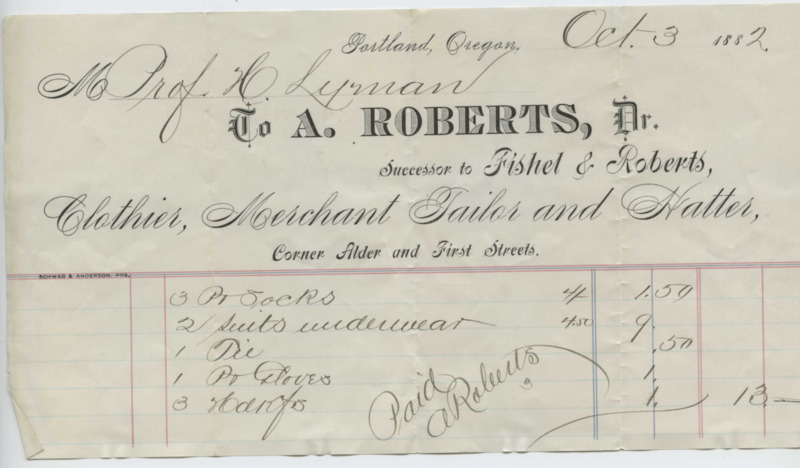 Portland, Oregon, Oct. 3 1882.
M Prof. H. Lyman
To A. ROBERTS, Dr.
Successor to Fishel & Roberts,
Clothier, Merchant Tailor and Hatter,
Corner Alder and First Streets.
SCHWAB & ANDERSON, PRS.
3 Pr Socks 4 1.50
2 Suits underwear 4.50 9.
1 Tie .50
1 Pr Gloves 1.
3 Hdkfs 1. 13—
Paid
A Roberts